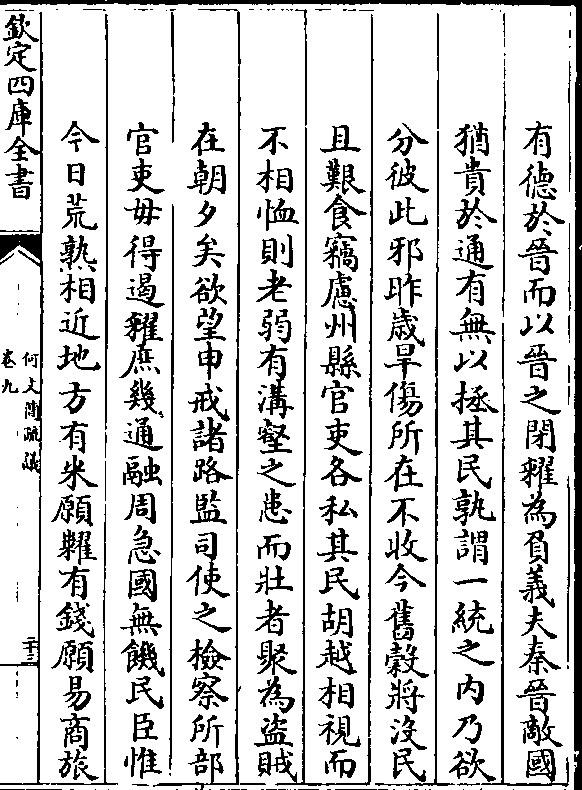 有德於晉而以晉之閉糴為負義夫秦晉敵國
猶貴於通有無以拯其民孰謂一統之內乃欲
分彼此邪昨歳旱傷所在不收今舊穀將沒民
且艱食竊慮州縣官吏各私其民胡越相視而
不相恤則老弱有溝壑之患而壯者聚為盜賊
在朝夕矣欲望申戒諸路監司使之檢察所部
官吏毋得遏糴庶幾通融周急國無饑民臣惟
今日荒熟相近地方有米願糶有錢願易商旅
欽定四庫全書
何文簡疏議
卷九
二十三